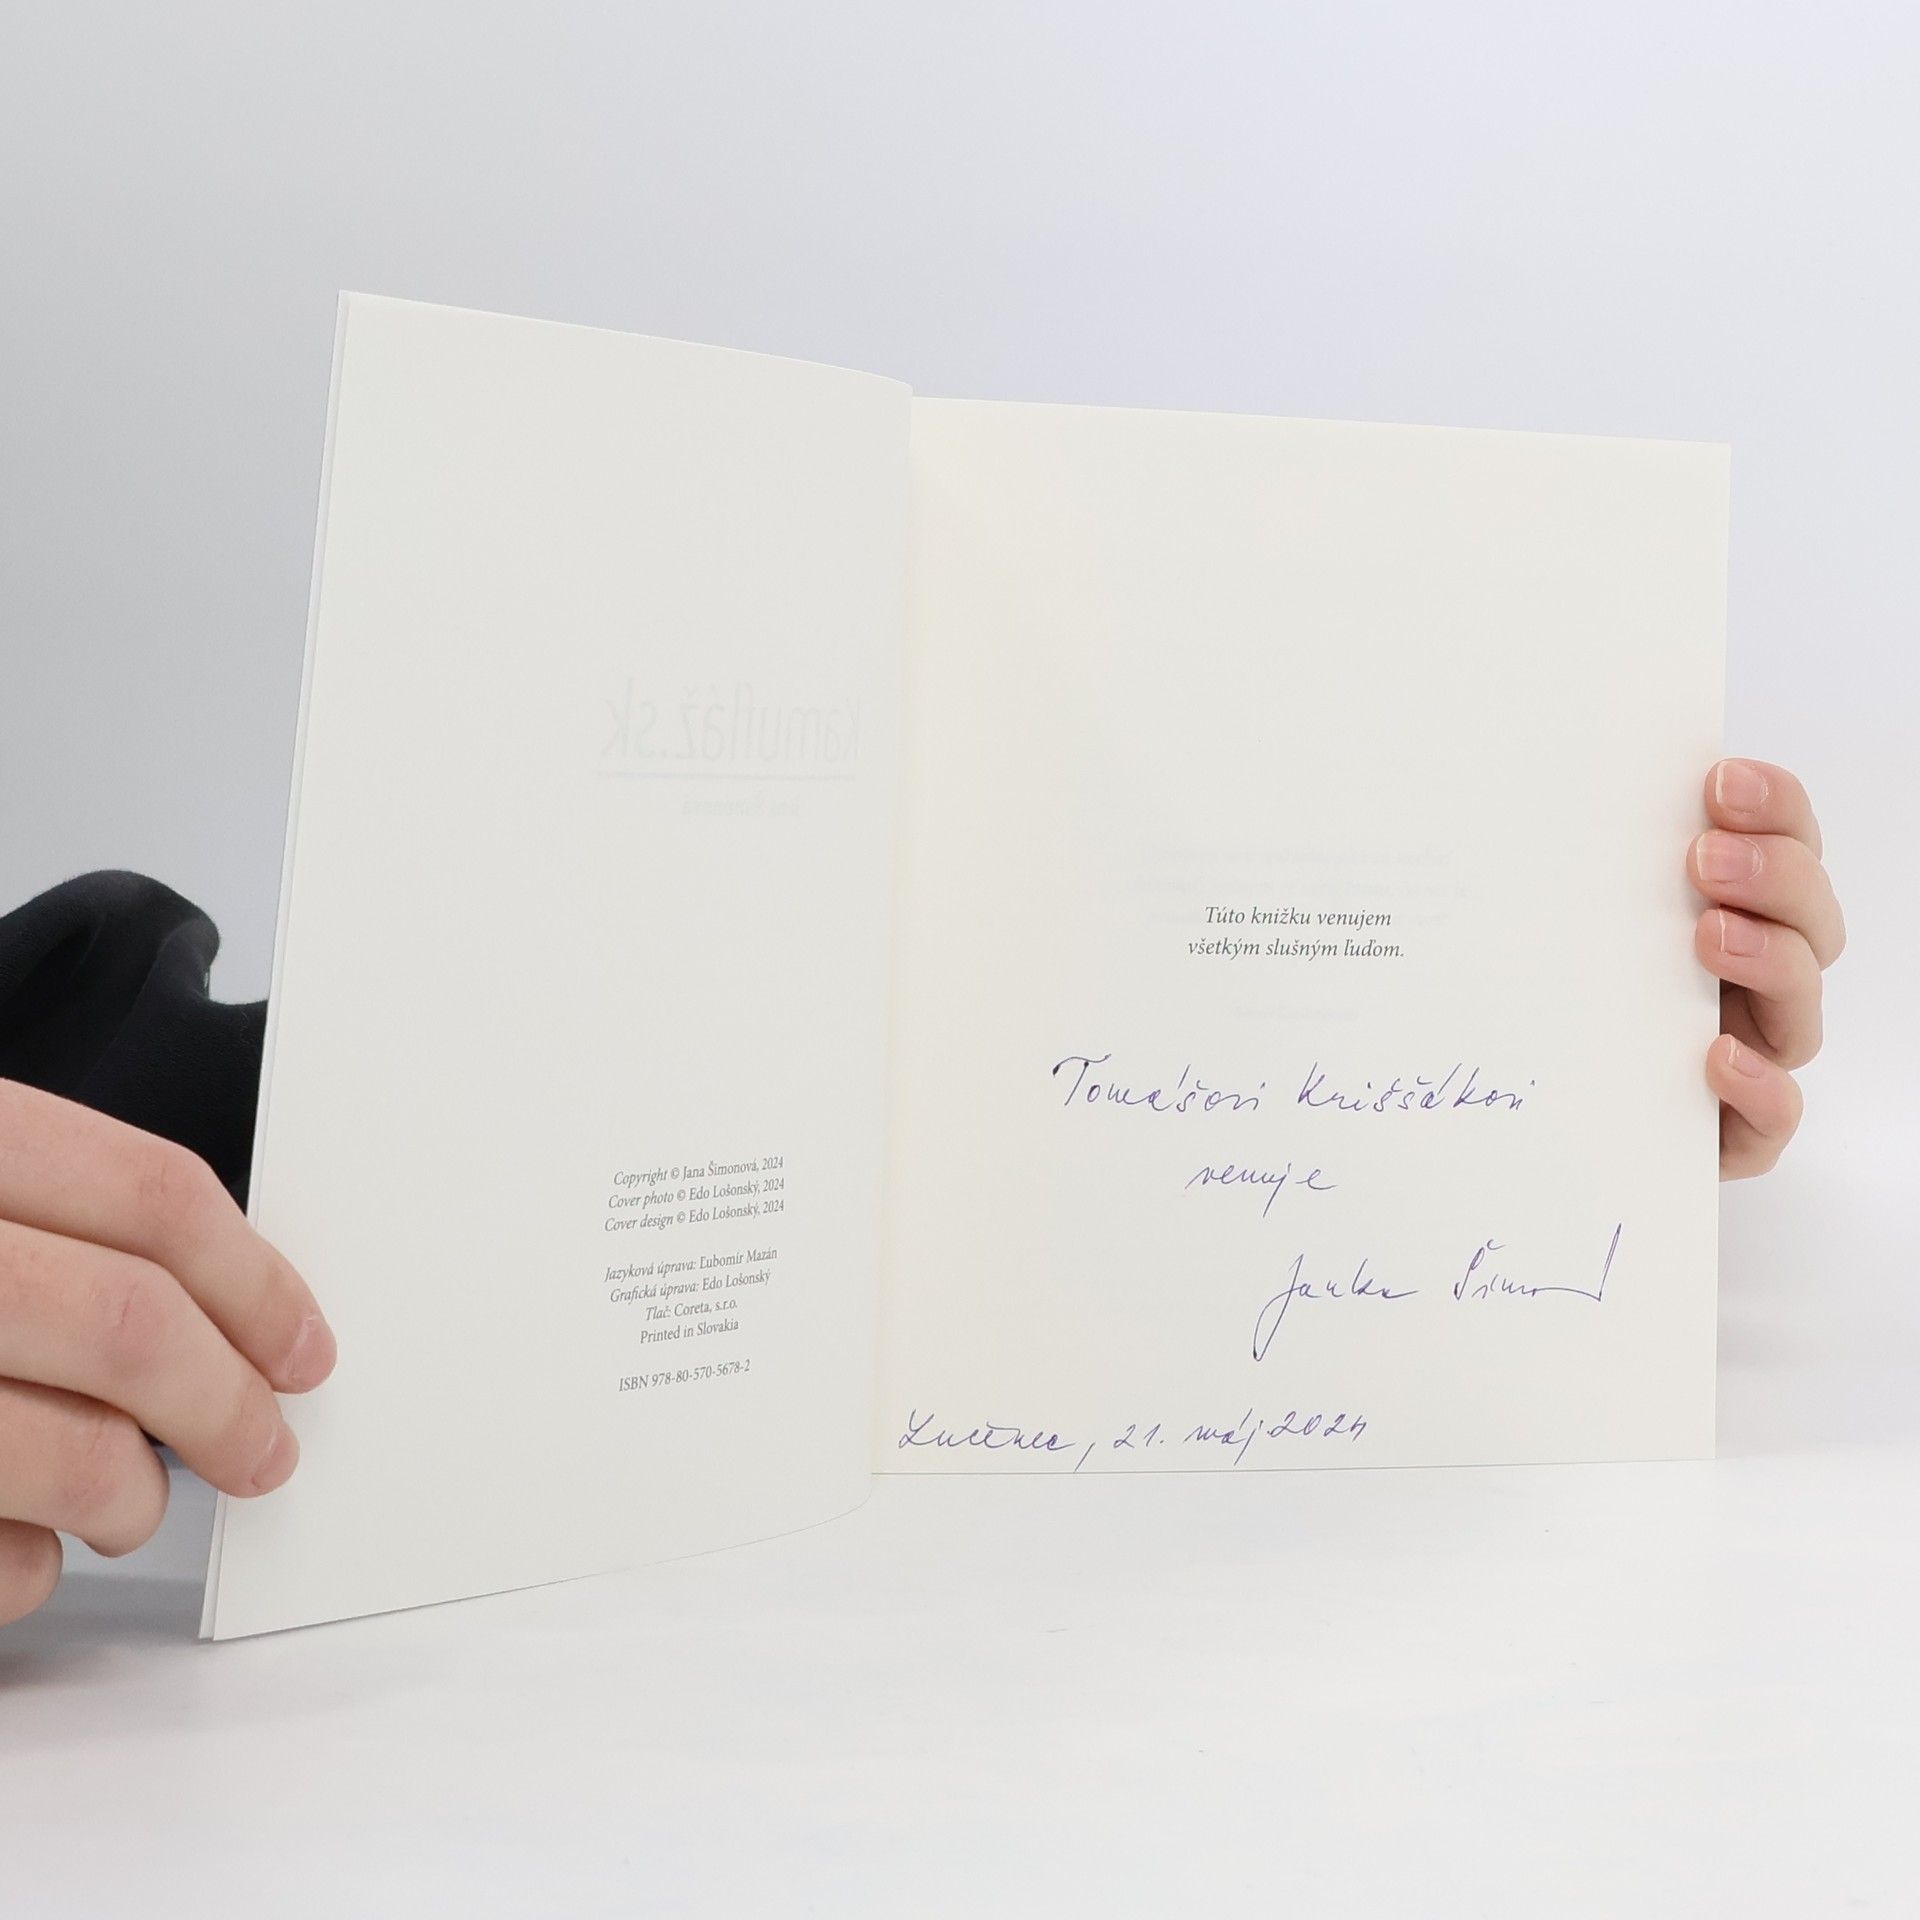 Copyright © Jana Šimonová, 2024
Cover photo © Edo Lošonský, 2024
Cover design © Edo Lošonský, 2024
Jazyková úprava: Ľubomír Mazán
Grafická úprava: Edo Lošonský
Tlač: Coreta, s.r.o.
Printed in Slovakia
ISBN 978-80-570-5678-2
kamufláž.sk
Jana Šimonová
Túto knižku venujem
všetkým slušným ľuďom.
Tomášovi Kriššákovi
venuje
Janka Šimon
Lučenec, 21. máj 2024